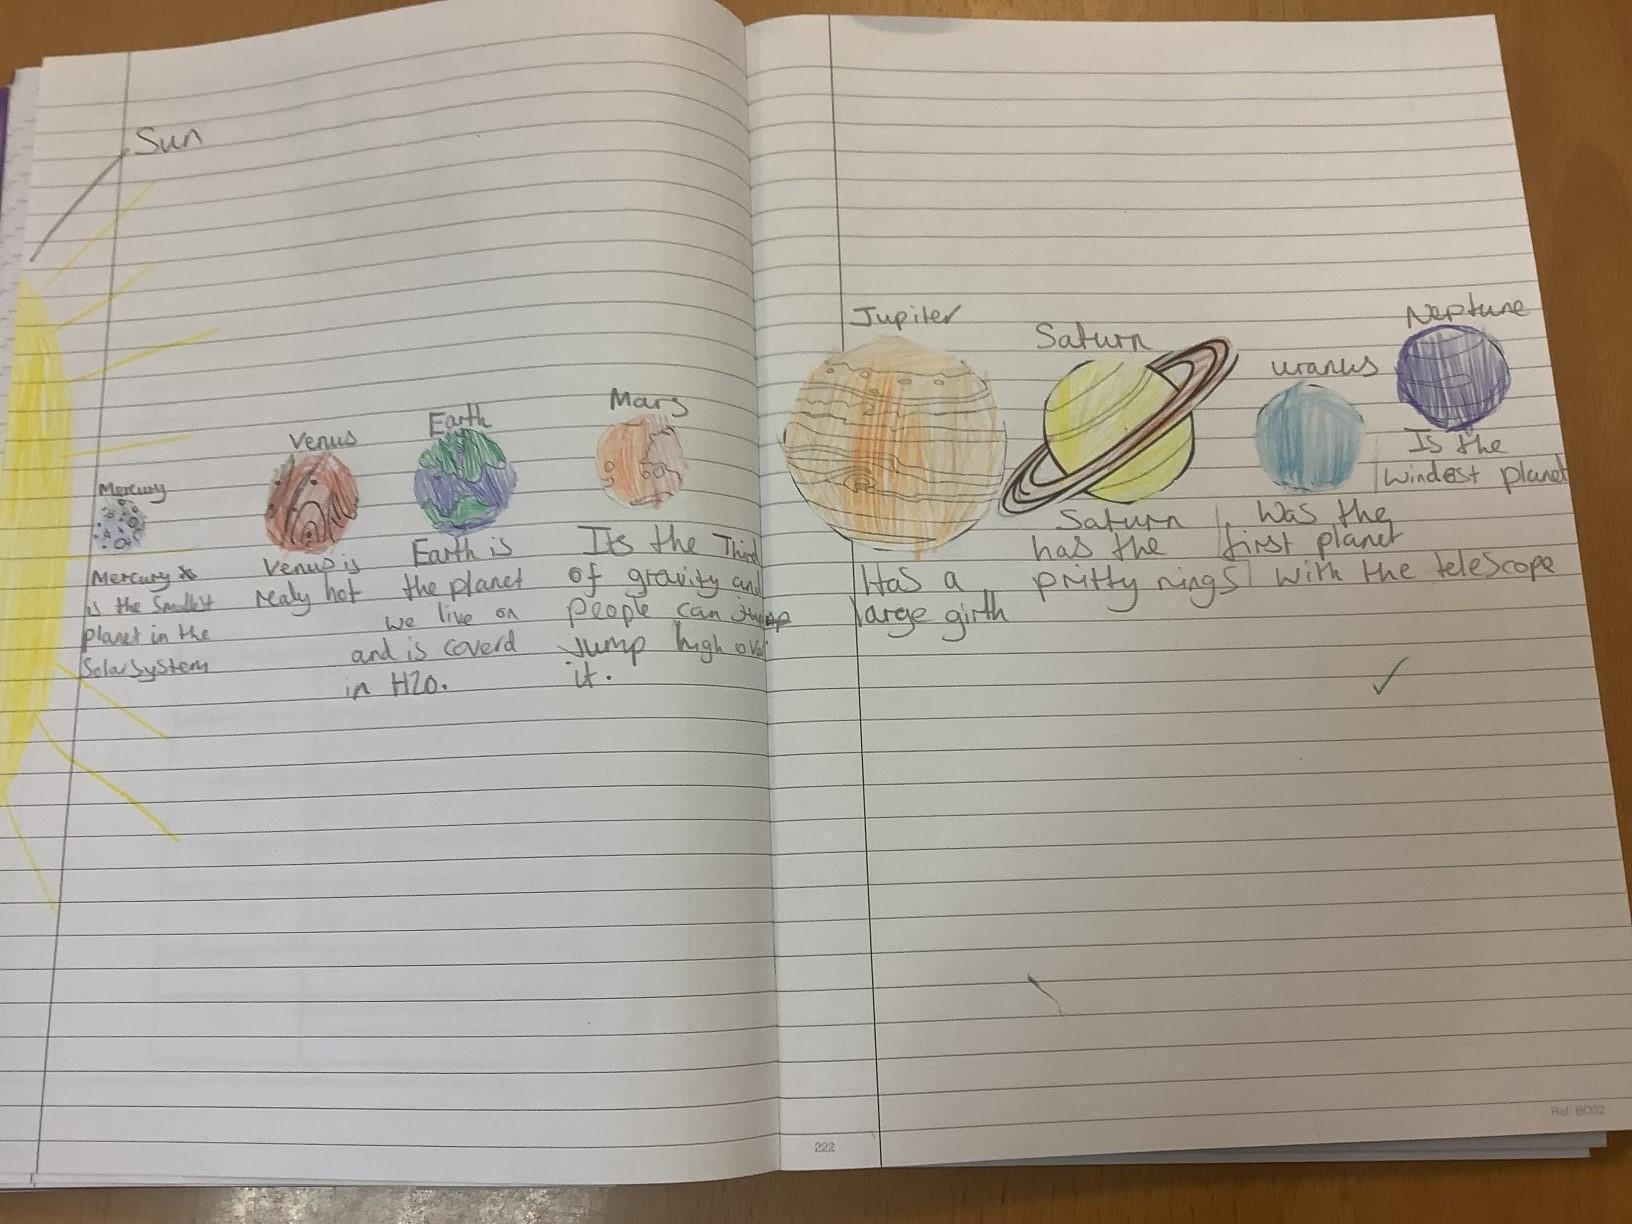 Sun
Mercury
Mercury
is the Smallest
planet in the
Solar System
Venus
Venus is
realy hot
Earth
Earth is
the planet
we live on
and is coverd
in H2O.
Mars
Its the Third
of gravity and
people can
Jump high over
it.
Jupiter
Has a
large girth
Saturn
Saturn
has the
pritty rings
uranus
Was the
first planet
with the telescope
Neptune
Is the
windest planet
222
Ref: BO32